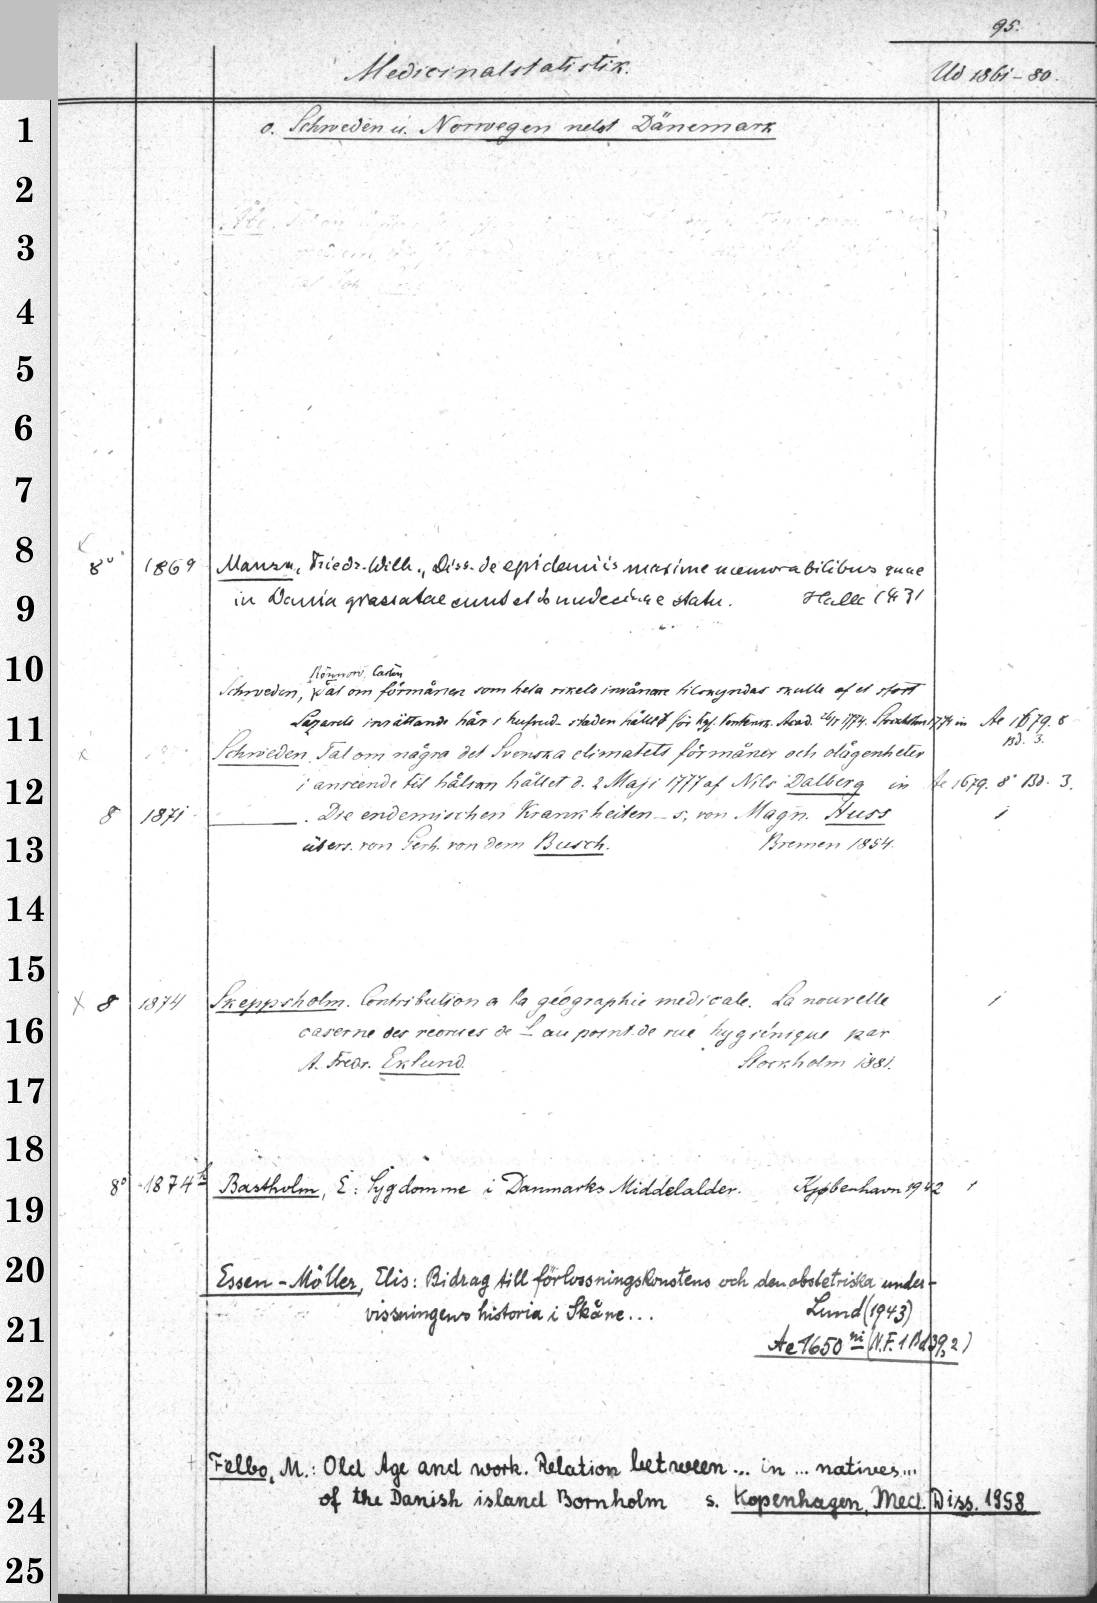 95.
Medicinalstatistik. Ud 1861-80.
1 o. Schweden u. Norwegen nebst Dänemark
2
3
4
5
6
7
8
8° 1869 Mansa, Friedr. Wilh., Diss. de epidemiis maxime memorabilibus quae
9 in Dania grassatae sunt et de medicinae statu. Halle 1831
10 Rönnow, Casten
Schweden, Tal om förmånen som hela rikets invånare tilskyndas skulle af et stort
11 Lazarets inrättande här i hufvud-staden hållet för Kgl. Vetensk. Acad. 1774. Stockholm 1774 in Ae 1679. 8
Bd. 3.
x Schweden. Tal om några det Svenska climatets förmåner och olägenheter
12 i anseende til hälsan hållet d. 2 Maji 1777 af Nils Dalberg in Ae 1679. 8° Bd. 3.
8 1871 ——. Die endemischen Krankheiten -s, von Magn. Huss 1
13 übers. von Gerh. von dem Busch. Bremen 1854.
14
15
x 8 1874 Skeppsholm. Contribution a la géographie medicale. La nouvelle 1
16 caserne des recrues de S au point de vue hygiénique par
A. Fredr. Eklund. Stockholm 1881.
17
18
8° 1874 h Bastholm, E: Sygdomme i Danmarks Middelalder. Kjøbenhavn 1942 1
19
20 Essen-Möller, Elis: Bidrag till förlossningskonstens och den obstetriska under-
vissningens historia i Skåne... Lund (1943)
21 Ae 1650 ni (N.F. 1 Bd 39,2)
22
23
Felbo, M.: Old Age and work. Relation between ... in ... natives...
24 of the Danish island Bornholm s. Kopenhagen, Med. Diss. 1958
25